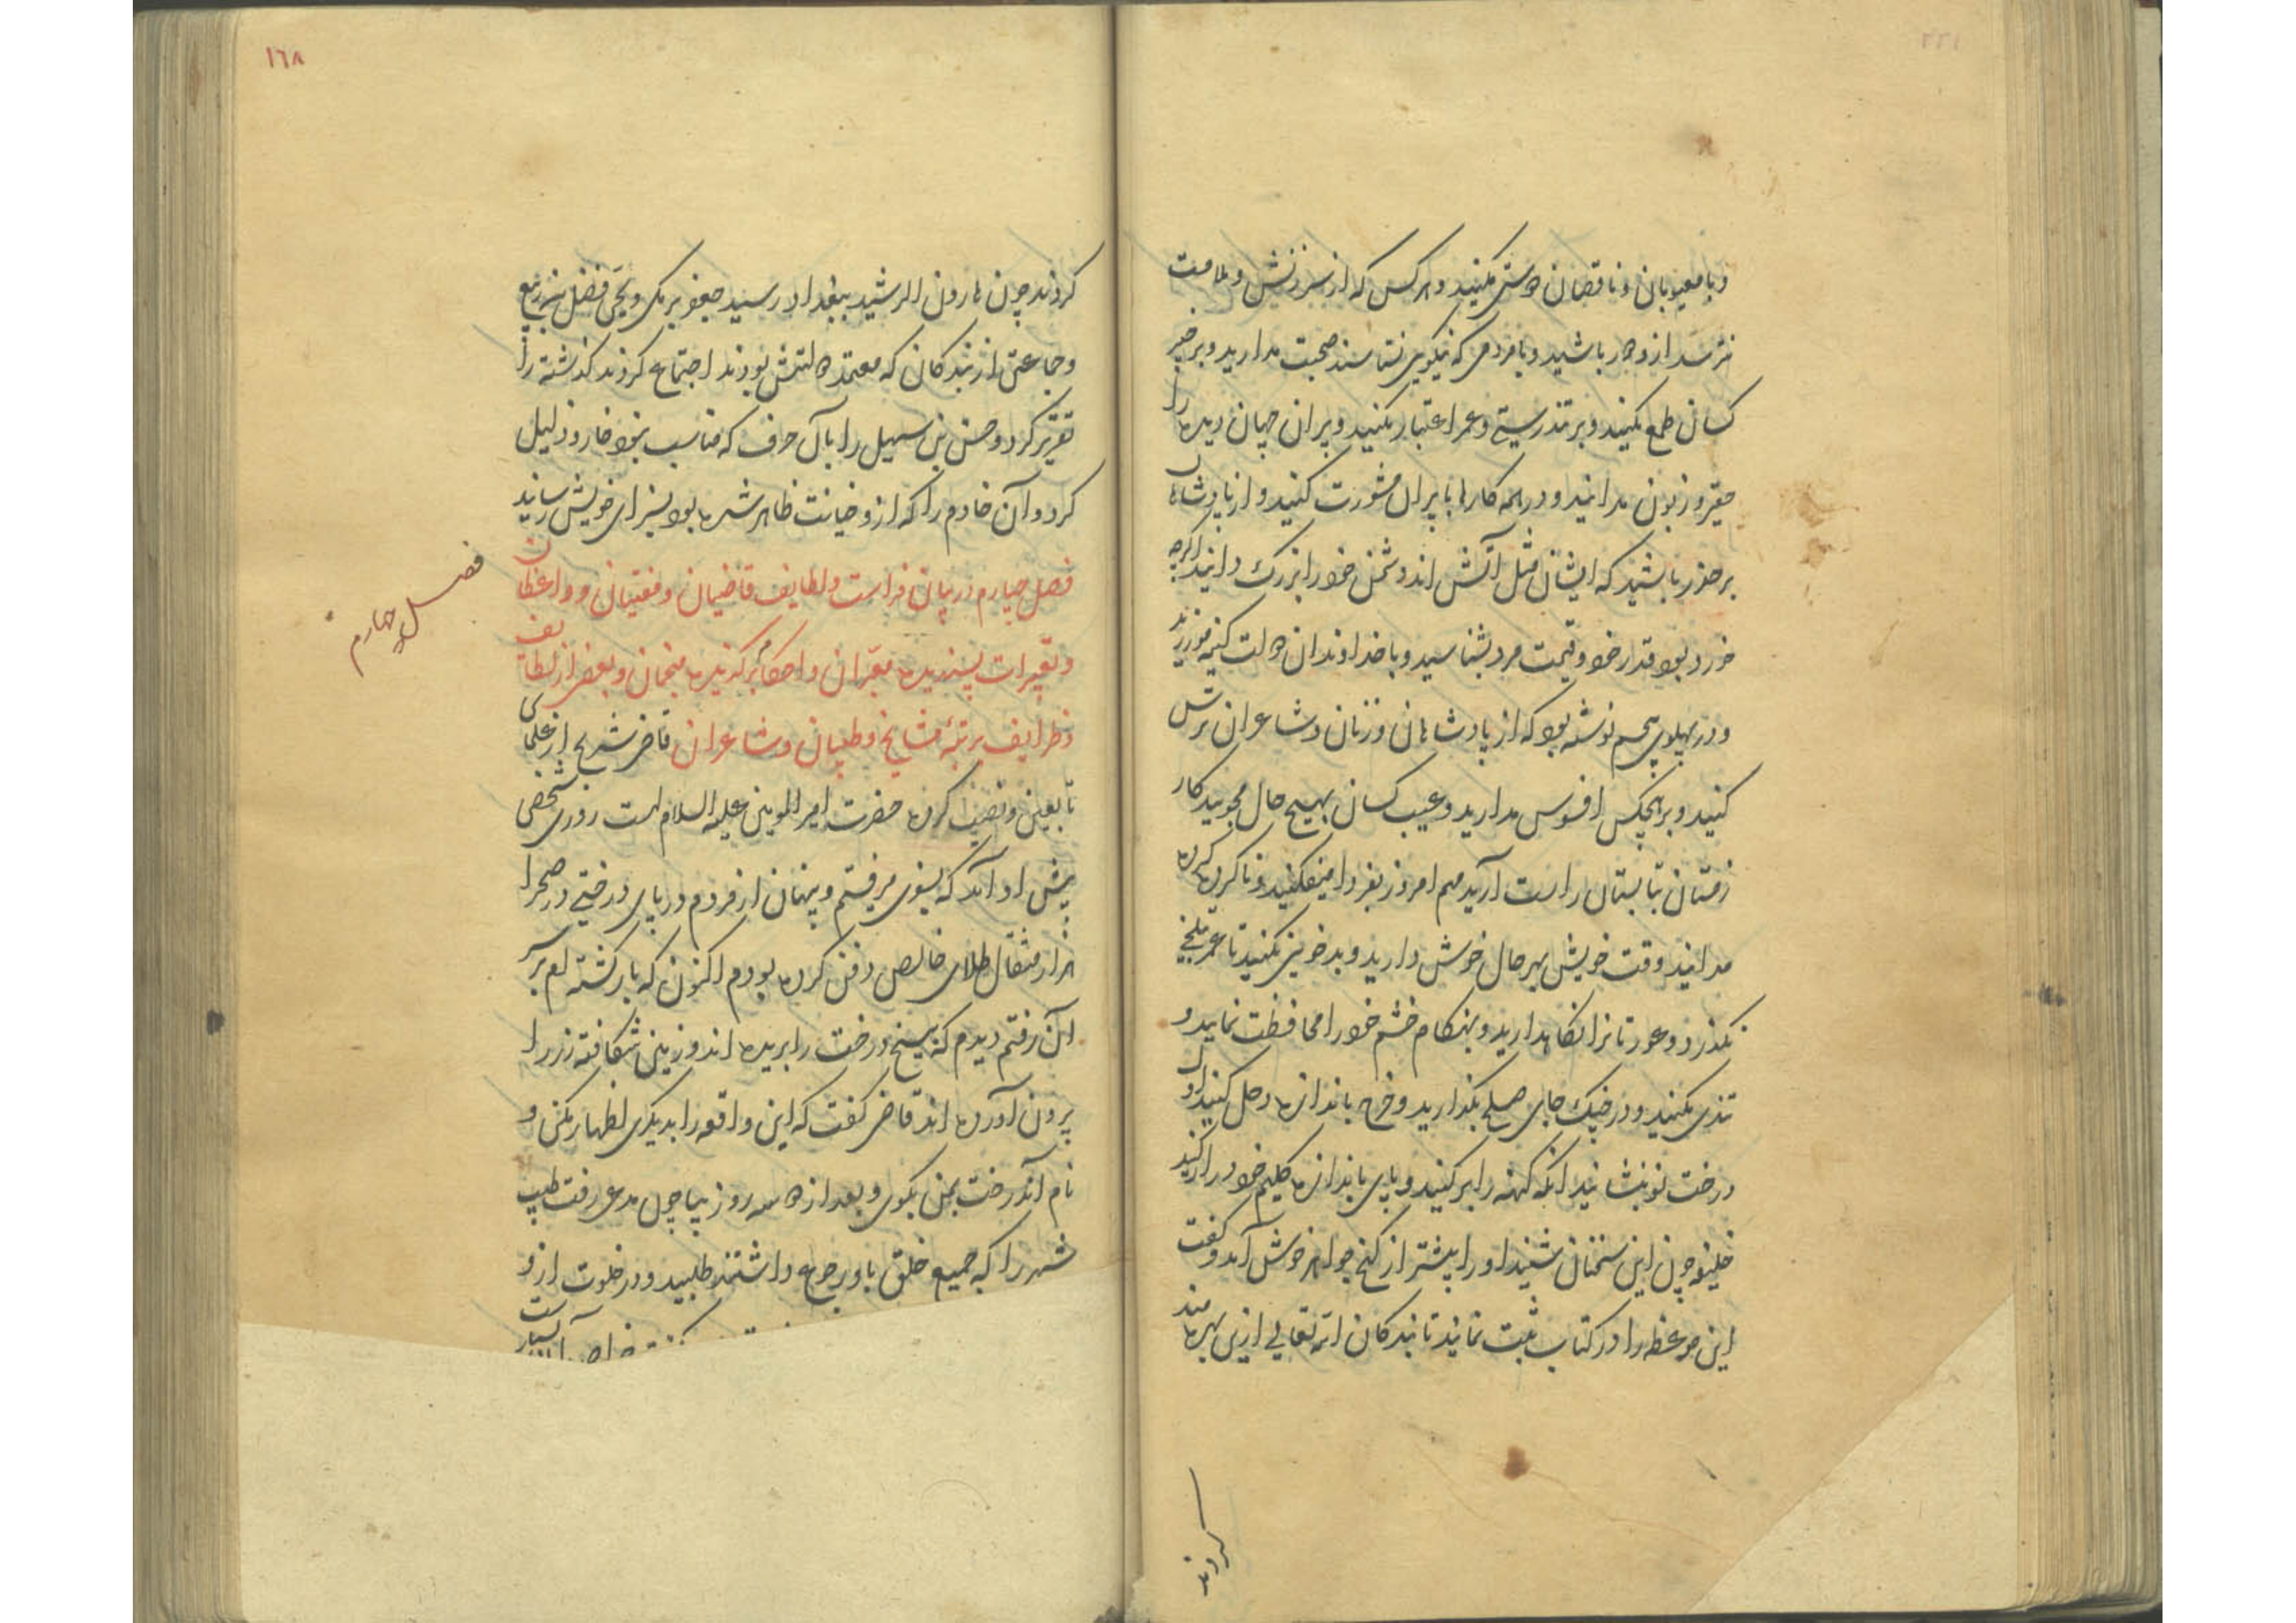 و با معیوبان و ناقصان دوستی مکنید و هر کس که از سرزنش و ملامت
نترسد ازو دور باشید و با مردمی که نیکویی نشناسند صحبت مدارید و بر خیر
کسان طمع مکنید و بر تندرستی و عمر اعتبار مکنید و پیران جهان دیده را
حقیر و زبون مدانید و در همه کارها با پیران مشورت کنید و از پادشاهان
بر حذر باشید که ایشان مثل آتش اند و دشمن خود را بزرک دانید اکرچه
خورد بود و قدر خود و قیمت مرد بشناسید و با خداوندان دولت کینه مورزید
و در پهلوی پنجم نوشته بود که از پادشاهان و زنان و شاعران ترس
کنید و بر هیچکس افسوس مدارید و عیب کسان بهیچ حال مجویید کار
زمستان بتابستان راست آرید مهم امروز بفردا میفکنید و ناکرده کرده
مدانید وقت خویش بهر حال خوش دارید و بدخویی مکنید تا عمر بتلخی
نکذرد و عورتانرا نکاهدارید و بهنکام خشم خود را محافظت نمایید و
تندی مکنید و در جنک جای صلح بکذارید و خرج باندازه دخل کنید و اول
درخت نو بنشانید آنکه کهنه را بر کنید و پای باندازه کلیم خود دراز کنید
خلیفه چون این سخنان بشنید او را بیشتر از کنج جواهر خوش آمد و کفت
این موعظه را در کتاب ثبت نمایند تا بندکان الله تعالی ازین بهره مند
کردند
١٦٨
کردند چون هارون الرشید ببغداد رسید جعفر برمکی و یحیی فضل بن ربیع
و جماعتی از بندکان که معتمد دولتش بودند اجتماع کردند کذشته را
تقریر کرد و حسن بن سهیل را بآن حرف که مناسب نبود خار و ذلیل
کرد و آن خادم را که ازو خیانت ظاهر شده بود بسزای خویش رسانید
فصل چهارم در بیان فراست و لطایف قاضیان و مفتیان و واعظان
و تعبیرات پسندیده معبران و احکام برکزیده منجمان و بعضی از لطایف
و ظرایف مرتبه مشایخ و طبیبان و شاعران قاضی شریح از علمای
تابعین و نصب کرده حضرت امیر المومنین علیه السلام است روزی شخصی
پیش او آمد که بسوی می رفتم و پنهان از مردم در پای درختی در صحرا
هزار مثقال طلای خالص دفن کرده بودم اکنون که باز کشته ام بر سر
آن رفتم دیدم که بیخ درخت را بریده اند و زمین شکافته زر را
بیرون آورده اند قاضی کفت که این واقعه را بدیکری اظهار مکن و
نام آندرخت بمن بکوی و بعد از دو سه روز بیا چون مدعی رفت طبیب
شهر را که جمیع خلق باو رجوع داشتند طلبید و در خلوت ازو
فصل چهارم